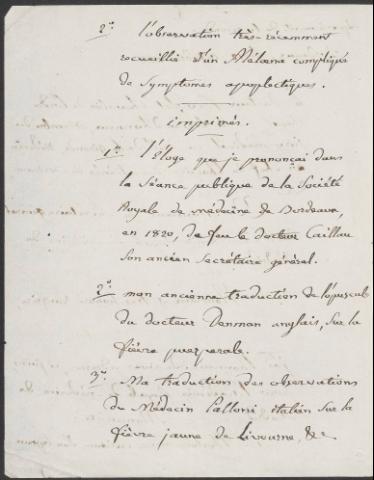 2° l'observation très-récemment
recueillie d'un Mélœna compliqué
de symptomes apoplectiques.
imprimés.
1° l'Éloge que je prononçai dans
la séance publique de la Société
Royale de médecine de Bordeaux,
en 1820, de feu le docteur Caillau
son ancien secrétaire général.
2° mon ancienne traduction de l'opuscule
du docteur Denman anglais, sur la
fièvre puerperale.
3° Ma traduction des observations
du Médecin Palloni italien sur la
fièvre jaune de Livourne, &c